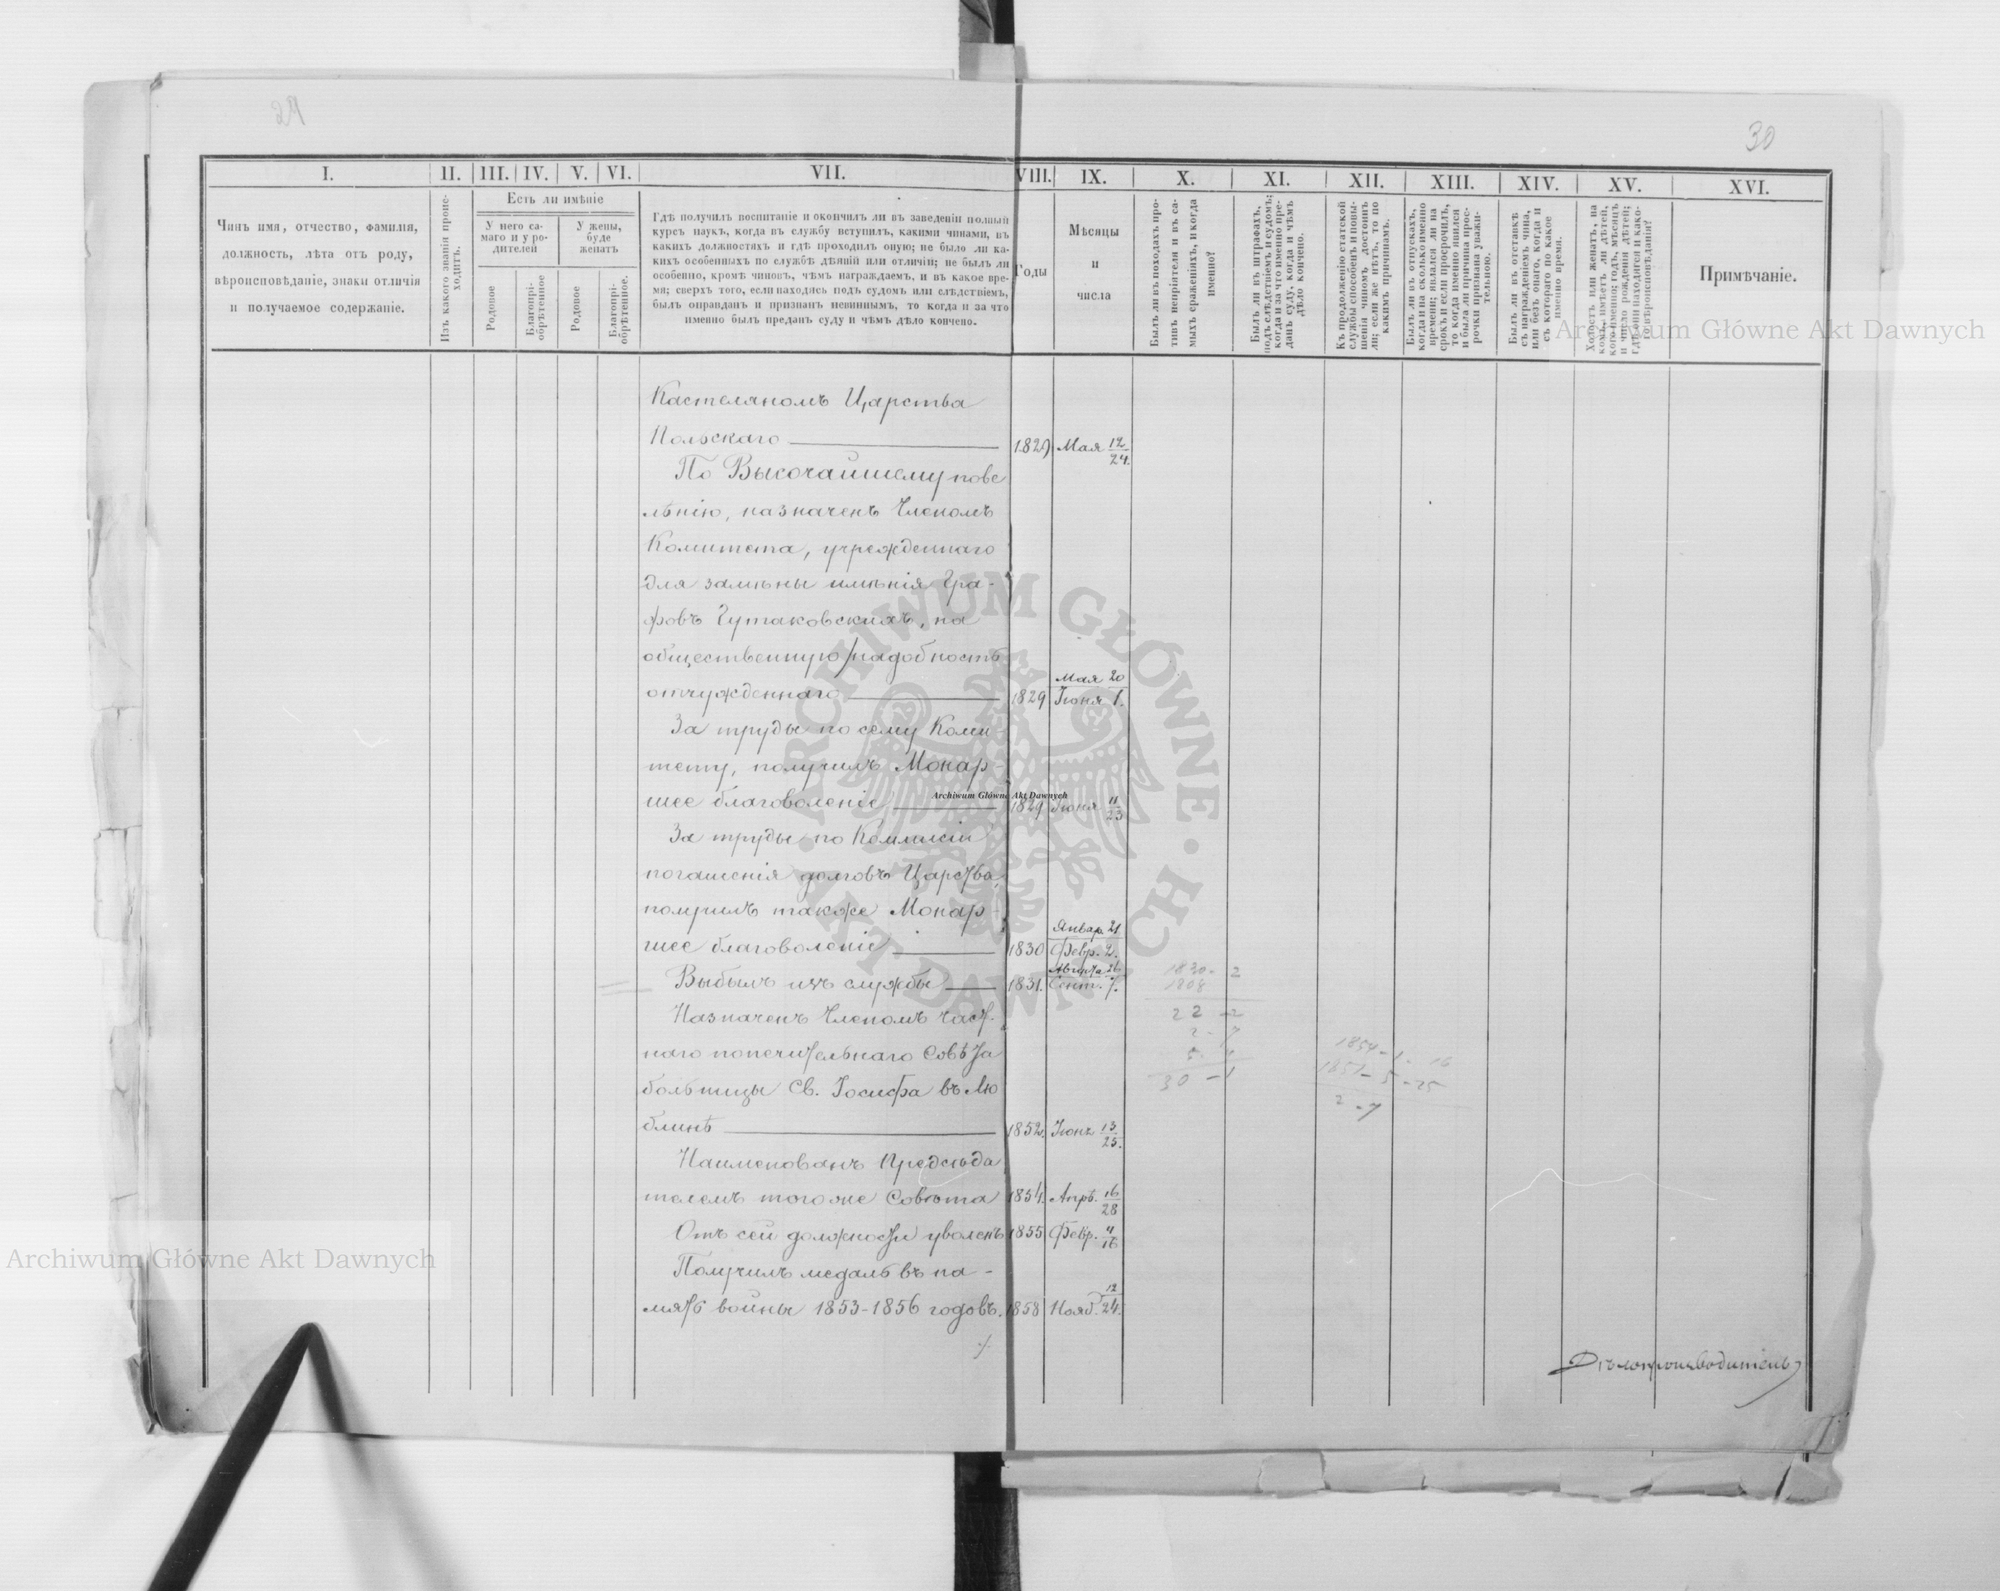 29
30
I.
II.
III.
IV.
V.
VI.
VII.
VIII.
IX.
X.
XI.
XII.
XIII.
XIV.
XV.
XVI.
Чинъ имя, отчество, фамилія,
должность, лѣта отъ роду,
вѣроисповѣданіе, знаки отличія
и получаемое содержаніе.
Изъ какого званія проис-
ходитъ.
Есть ли имѣніе
У него са-
маго и у ро-
дителей
У жены,
буде
женатъ
Родовое
Благопрі-
обрѣтенное
Родовое
Благопрі-
обрѣтенное.
Гдѣ получилъ воспитаніе и окончилъ ли въ заведеніи полный
курсъ наукъ, когда въ службу вступилъ, какими чинами, въ
какихъ должностяхъ и гдѣ проходилъ оную; не было ли ка-
кихъ особенныхъ по службѣ дѣяній или отличій; не былъ ли
особенно, кромѣ чиновъ, чѣмъ награждаемъ, и въ какое вре-
мя; сверхъ того, если находясь подъ судомъ или слѣдствіемъ,
былъ оправданъ и признанъ невиннымъ, то когда и за что
именно былъ преданъ суду и чѣмъ дѣло кончено.
Годы
Мѣсяцы
и
числа
Былъ ли въ походахъ про-
тивъ непріятеля и въ са-
мыхъ сраженіяхъ, и когда
именно?
Былъ ли въ штрафахъ,
подъ слѣдствіемъ и судомъ;
когда и за что именно пре-
данъ суду, когда и чѣмъ
дѣло кончено.
Къ продолженію статской
службы способенъ и повы-
шенія чиномъ достоинъ
ли; если же нѣтъ, то по
какимъ причинамъ.
Былъ ли въ отпускахъ,
когда и на сколько именно
времени; явился ли на
срокъ и если просрочилъ,
то когда именно явился
и была ли причина прос-
рочки признана уважи-
тельною.
Былъ ли въ отставкѣ
съ награжденіемъ чина,
или безъ онаго, когда и
съ котораго по какое
именно время.
Холостъ или женатъ, на
комъ, имѣетъ ли дѣтей,
кого именно; годъ, мѣсяцъ
и число рожденія дѣтей;
гдѣ они находятся и како-
го вѣроисповѣданія?
Примѣчаніе.
Кастеляномъ Царства
Польскаго 1829 Мая 12/24.
По Высочайшему пове
лѣнію, назначенъ Членомъ
Комитета, учрежденнаго
для замѣны имѣнія Гра-
фовъ Гутаковскихъ, на
общественную надобность
отчужденнаго 1829 Мая 20 Іюня 1.
За труды по сему Коми-
тету, получилъ Монар-
шее благоволеніе 1829 Іюня 11/23
За труды по Коммисіи
погашенія долговъ Царства,
получилъ также Монар-
шее благоволеніе 1830 Январ. 21 Февр. 2.
Выбылъ изъ службы 1831. Августа 26 Сент. 7.
Назначенъ Членомъ част-
наго попечительнаго Совѣта
больницы Св. Іосифа въ Лю
блинѣ 1852. Іюня 13/25.
Наименованъ Предсѣда
телемъ того же Совѣта 1854. Апрѣ. 16/28
Отъ сей должности уволенъ 1855 Февр. 4/16
Получилъ медаль въ па-
мять войны 1853-1856 годовъ. 1858 Нояб. 12/24.
1830 - 2
1808
22 - 2
2 - 7
30 - 1
1854 - 1 - 16
1851 - 5 - 25
2 - 7
Дѣлопроизводитель
Archiwum Główne Akt Dawnych
Archiwum Główne Akt Dawnych
Archiwum Główne Akt Dawnych
ARCHIWUM GŁÓWNE · AKT DAWNYCH ·